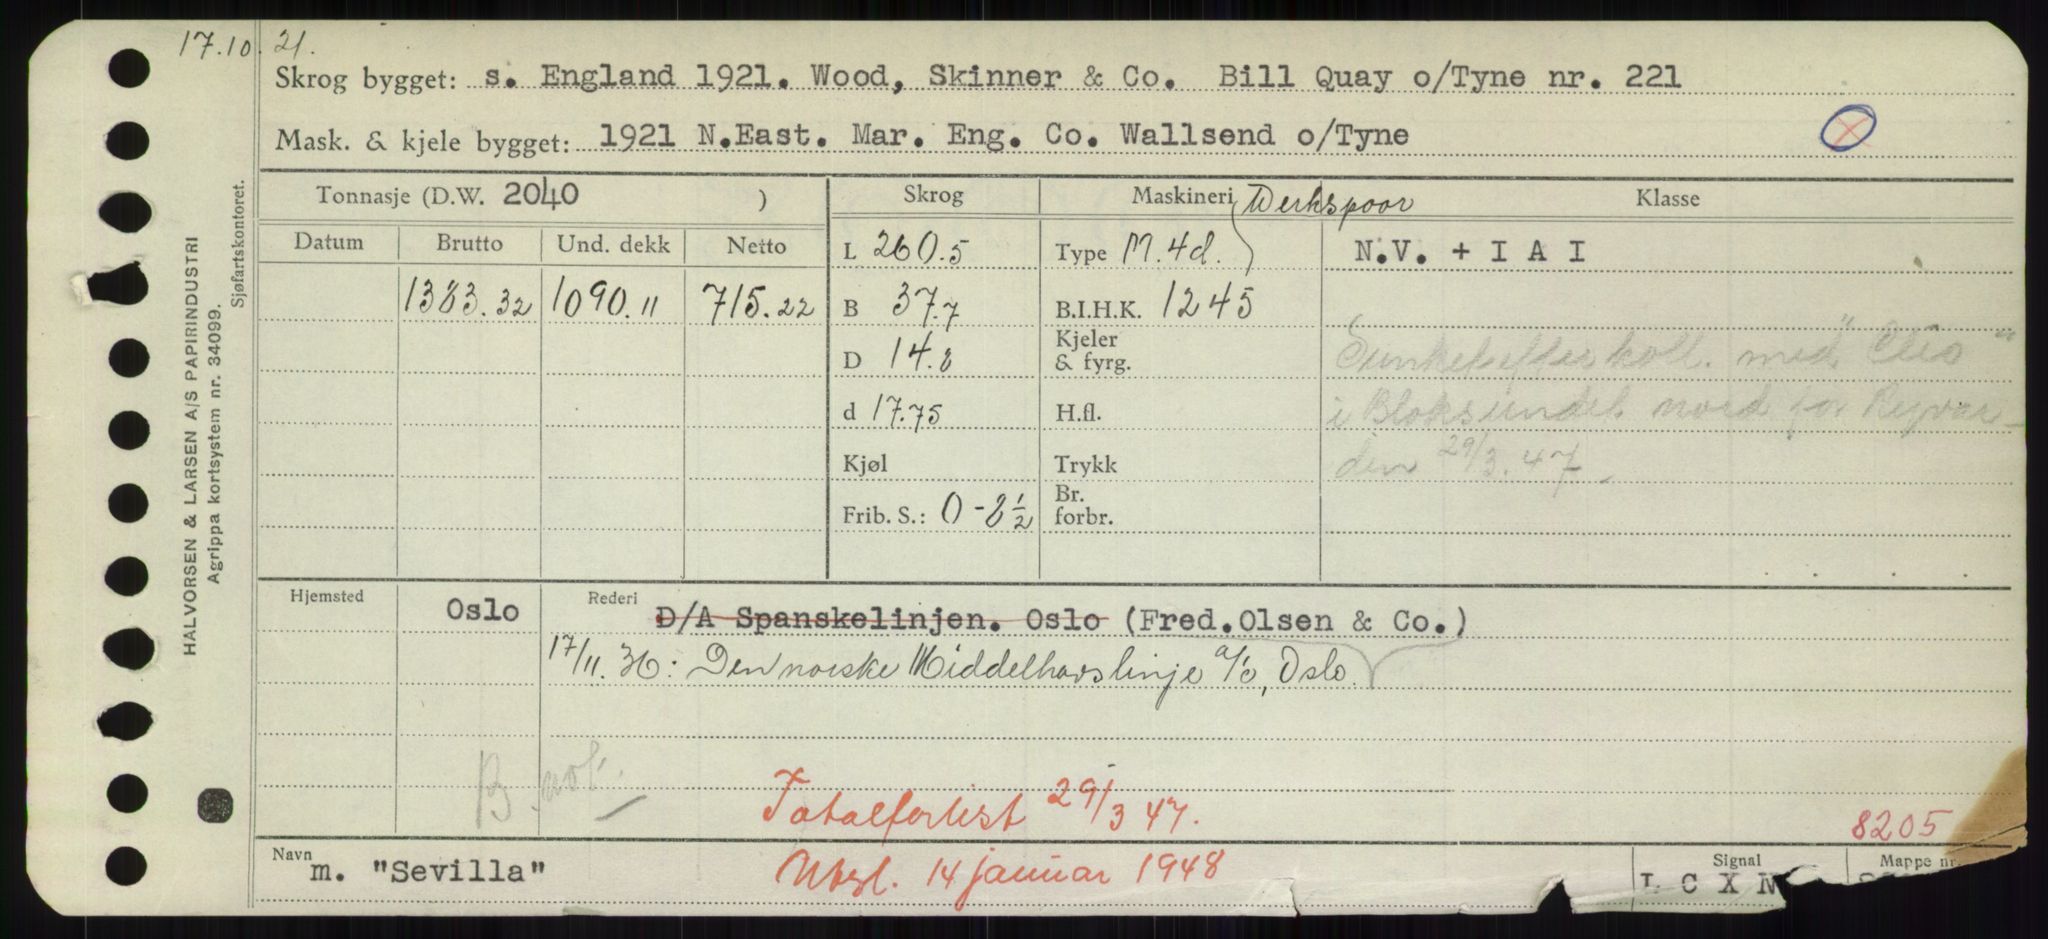 17.10.21.
Skrog bygget: s. England 1921. Wood, Skinner & Co. Bill Quay o/Tyne nr. 221
Mask. & kjele bygget: 1921 N.East. Mar. Eng. Co. Wallsend o/Tyne
Tonnasje (D.W. 2040 ) Skrog Maskineri Werkspoor Klasse
Datum Brutto Und. dekk Netto L 260.5 Type M.4d. N.V. + I A I
1383.32 1090.11 715.22 B 37.7 B.I.H.K. 1245
D 14.8 Kjeler & fyrg. Sunket efter koll. med "Clio"
d 17.75 H.fl. i Bloksundet nord for Ryvar-
Kjøl Trykk den 29/3.47.
Frib. S.: 0-8½ Br. forbr.
Hjemsted Oslo Rederi D/A Spanskelinjen. Oslo (Fred.Olsen & Co.)
17/11.36: Den norske Middelhavslinje a/s, Oslo.
B. not.
Totalforlist 29/3 47.
8205
Navn m. "Sevilla" Utgl. 14 januar 1948 Signal L C X N Mappe nr.
HALVORSEN & LARSEN A/S PAPIRINDUSTRI
Agrippa kortsystem nr. 34099.
Sjøfartskontoret.